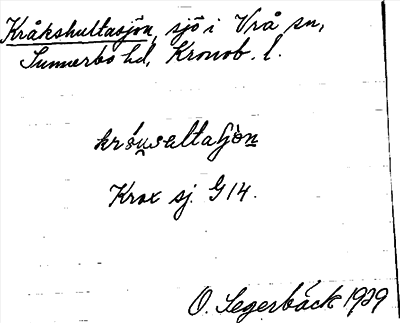 Kråkshultasjön, sjö i Vrå sn,
Sunnerbo hd, Kronob. l.
króu̯sæltaʃö̀n
Krax sj. G 14.
O. Segerbäck 1929